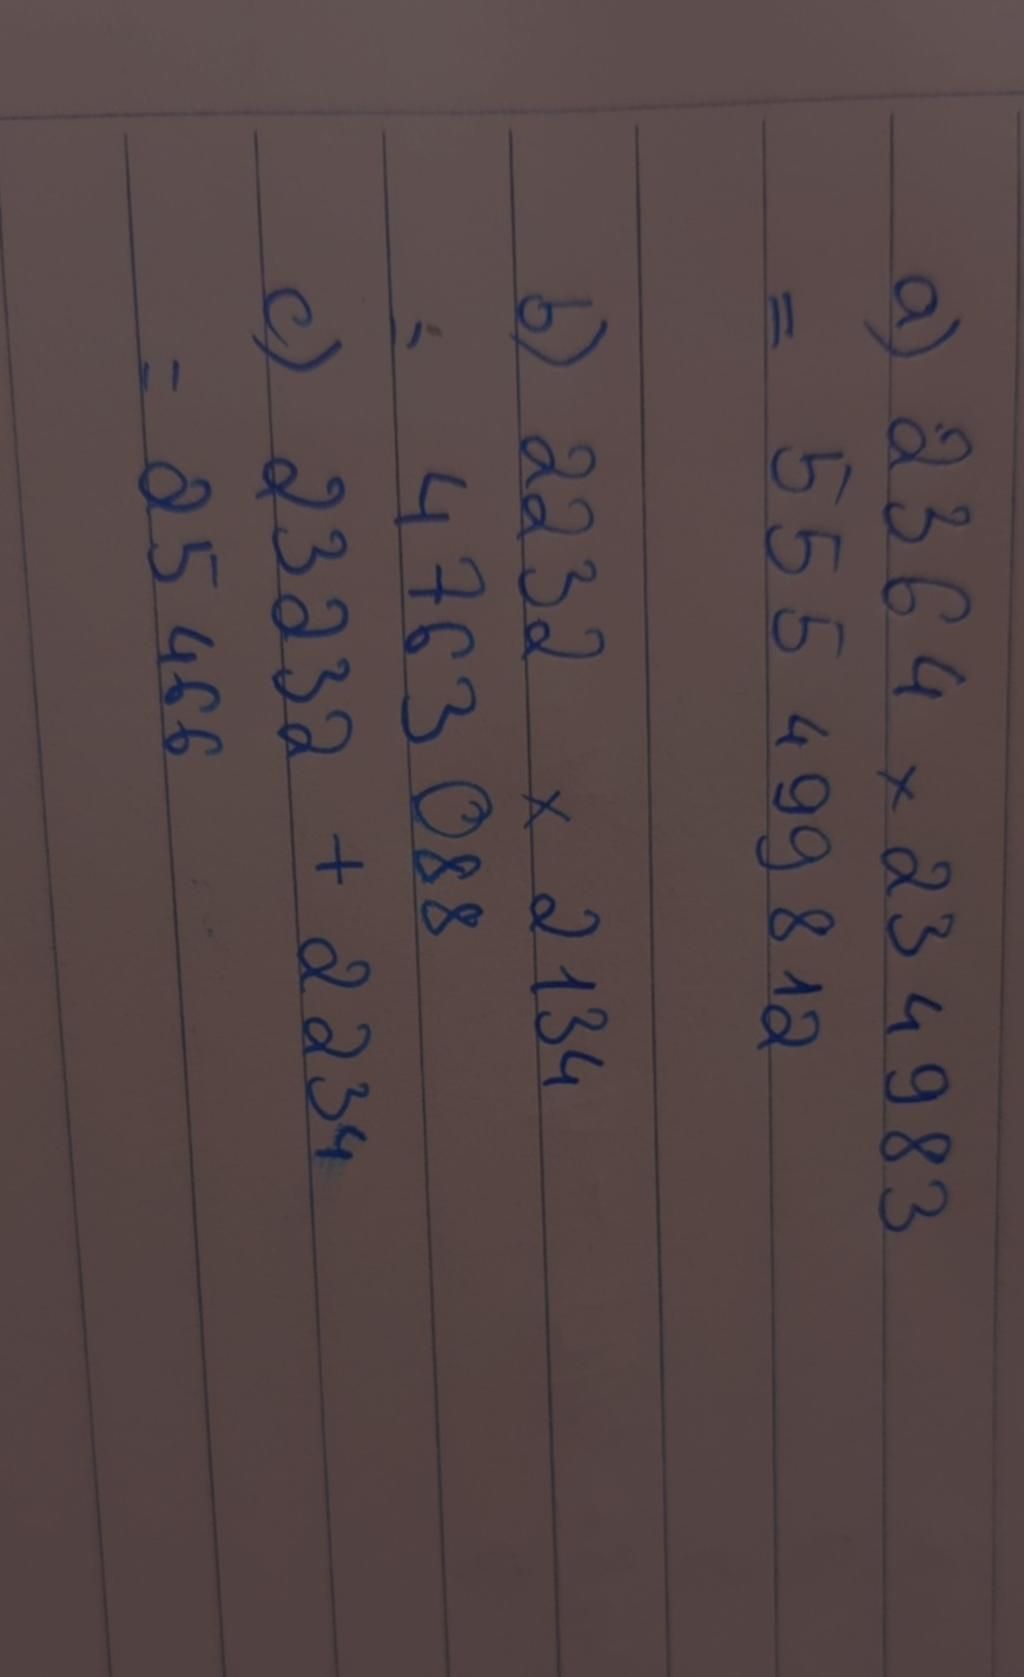 a) 2364 × 234983
= 555499812
b) 2232 × 2134
= 4763088
c) 23232 + 2234
= 25466